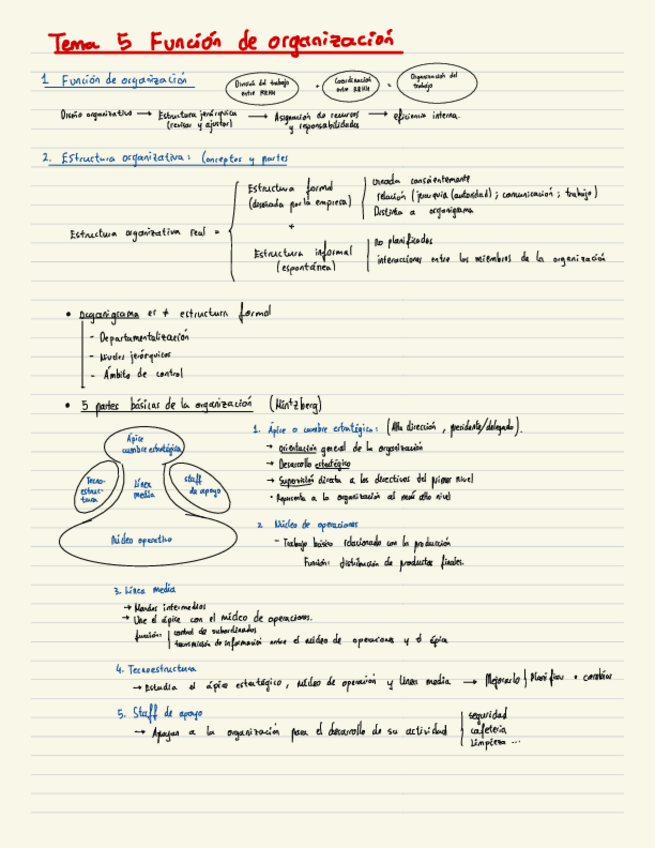 Tema 5 Función de organización
1 Función de organización
División del trabajo entre RRHH + Coordinación entre RRHH = Organización del trabajo
Diseño organizativo → Estructura jerárquica (revisar y ajustar) → Asignación de recursos y responsabilidades → eficiencia interna.
2. Estructura organizativa: Conceptos y partes
Estructura organizativa real =
Estructura formal (diseñada por la empresa)
creada conscientemente
relación (jerarquía (autoridad) ; comunicación ; trabajo)
Distinta a organigrama
+
Estructura informal (espontánea)
no planificadas
interacciones entre los miembros de la organización
• Organigrama es ≠ estructura formal
- Departamentalización
- Niveles jerárquicos
- Ámbito de control
• 5 partes básicas de la organización (Mintzberg)
Ápice
cumbre estratégica
Tecno-
estruc-
tura
línea
media
staff
de apoyo
Núcleo operativo
1. Ápice o cumbre estratégica: (Alta dirección, presidente/delegado).
→ orientación general de la organización
→ Desarrollo estratégico
→ Supervisión directa a los directivos del primer nivel
• Representa a la organización al más alto nivel
2 Núcleo de operaciones
- Trabajo básico relacionado con la producción
Función: distribución de productos finales.
3. Línea media
→ Mandos intermedios
→ Une el ápice con el núcleo de operaciones.
función:
control de subordinados
transmisión de información entre el núcleo de operaciones y el ápice
4. Tecnoestructura
→ Estudia el ápice estratégico, núcleo de operación y líneas media → Mejorarlo | Planificar + cambiar
5. Staff de apoyo
→ Apoyan a la organización para el desarrollo de su actividad
seguridad
cafetería
limpieza ...